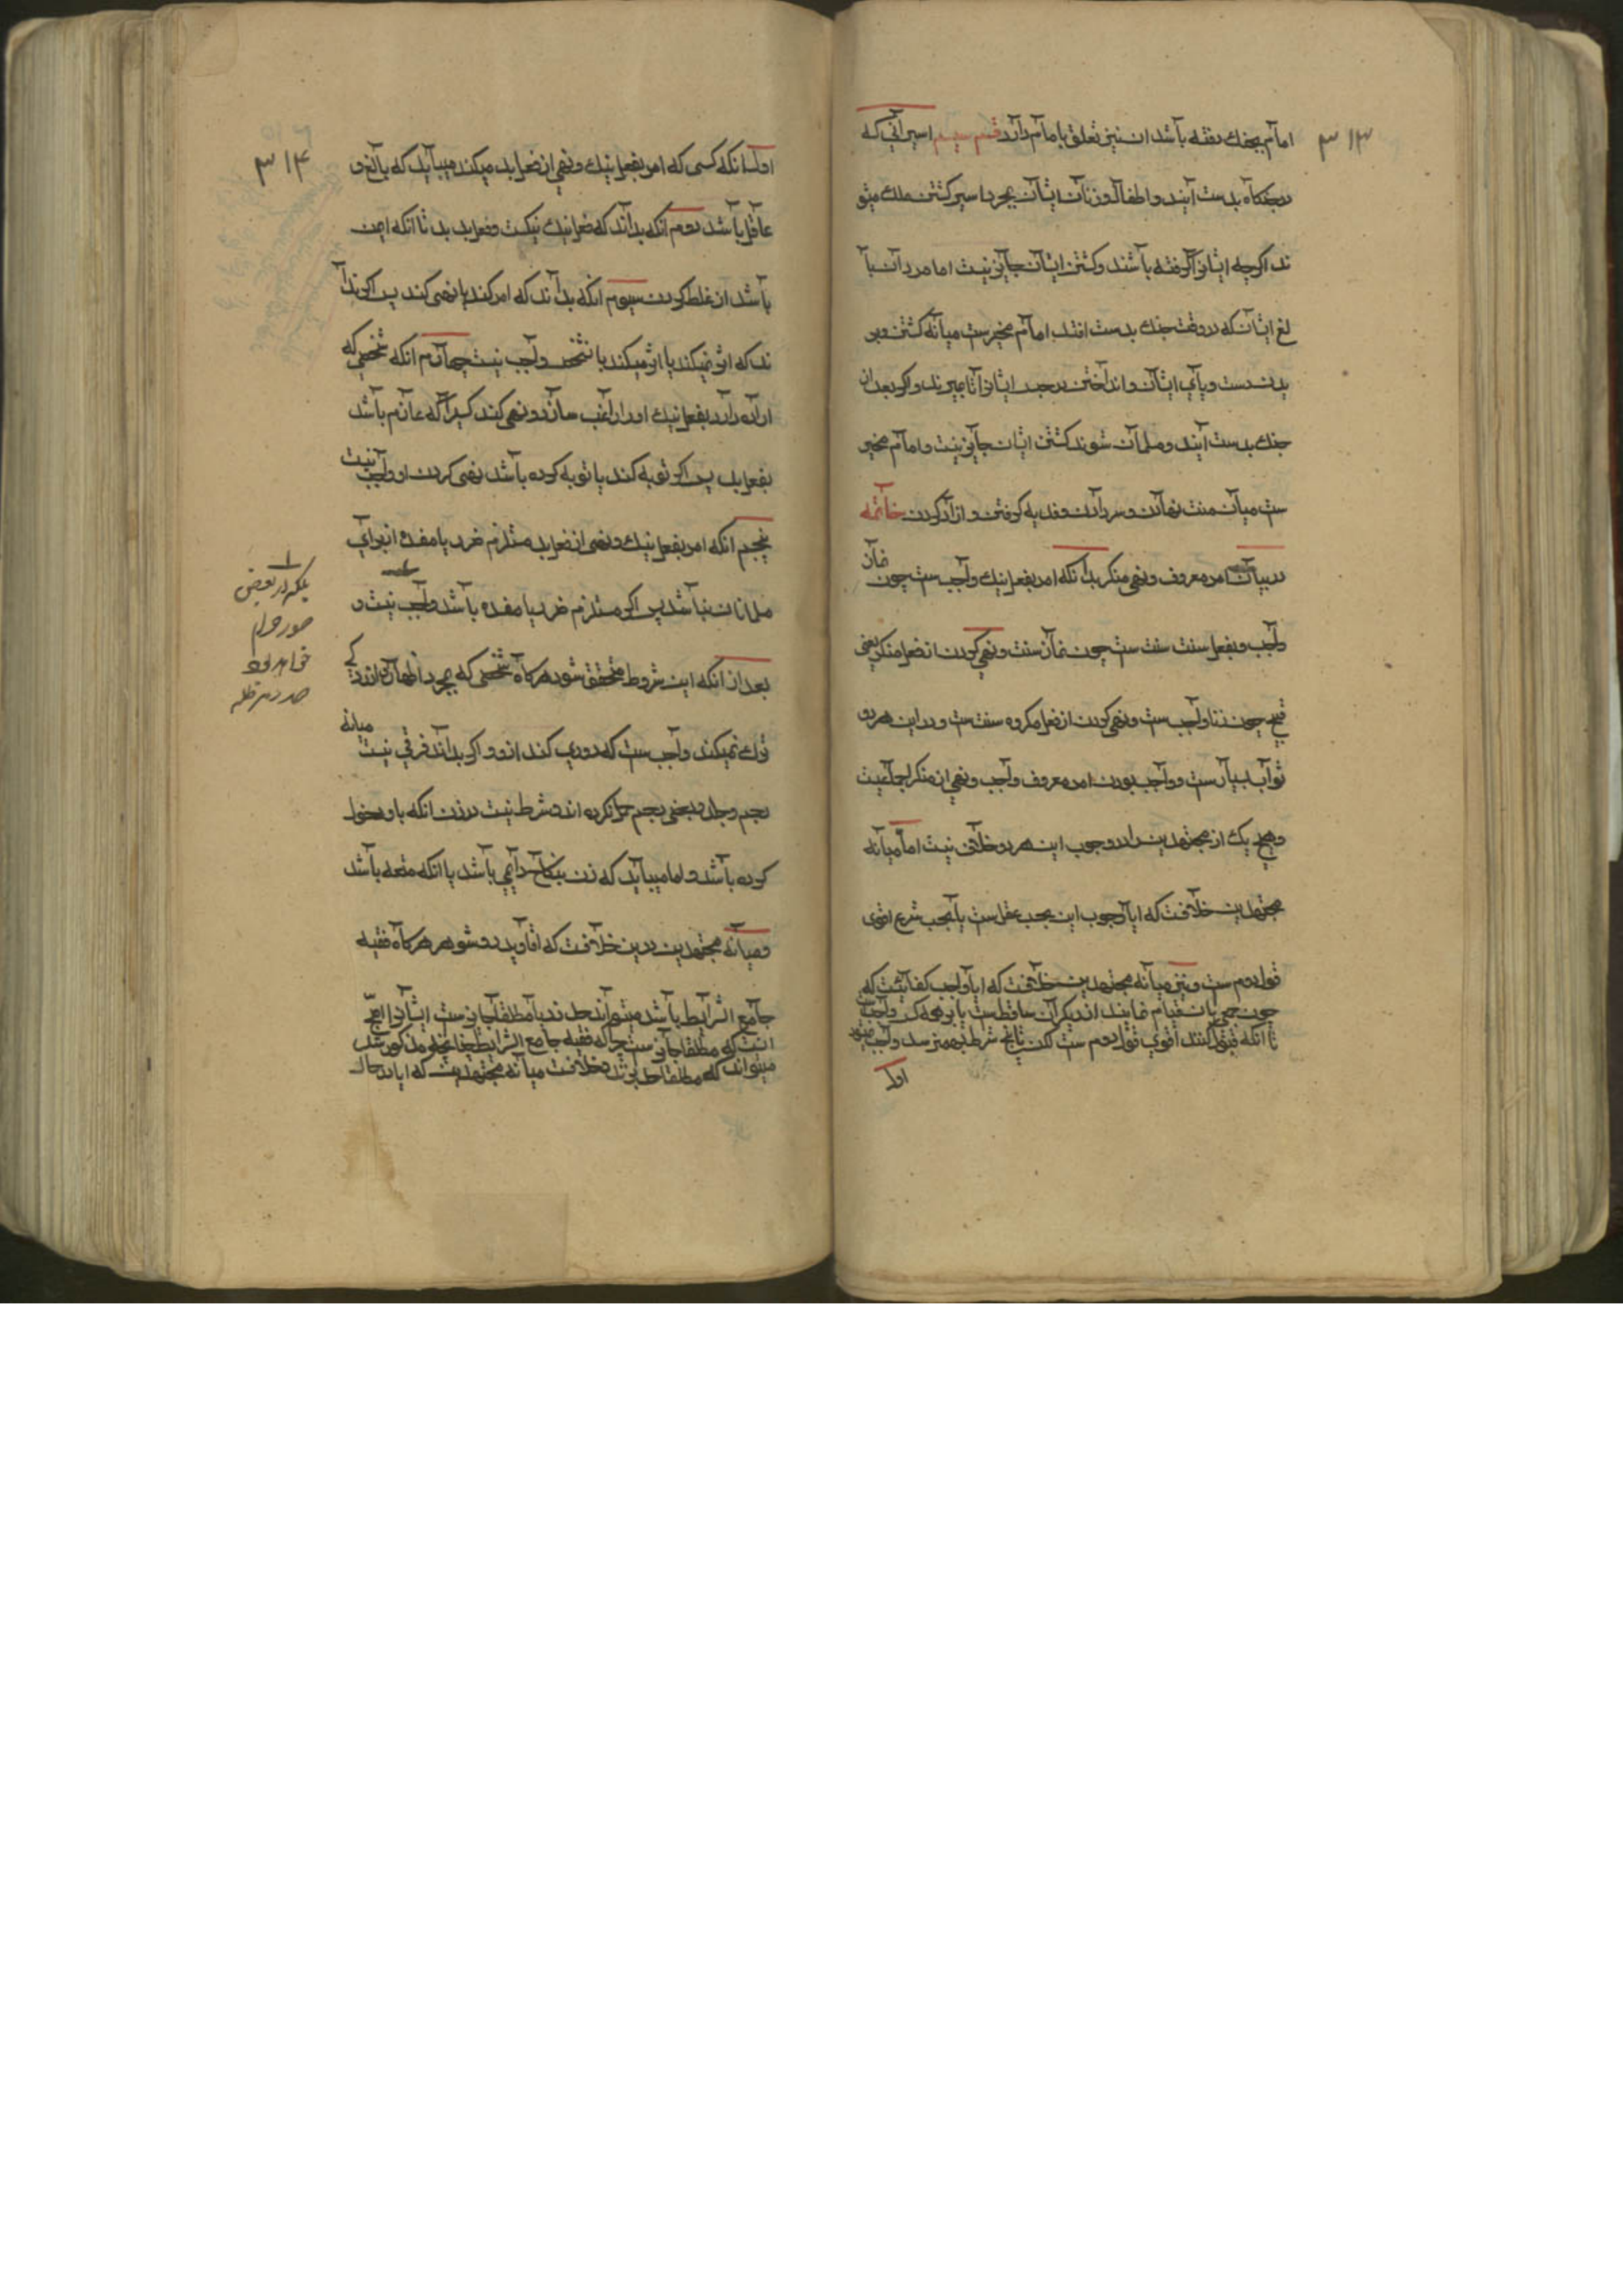 ۳۱۳
امام بجنك رفته باشد ان نیز تعلق بامام دارد قسم سیم اسیرانی که
در جنکاه بدست آیند و اطفال و زنان ایشان بمجرد اسیر کشتن ملك میشو
ند اکرچه ایشانرا کرفته باشند و کشتن ایشان جایز نیست اما مردان با
لغ ایشان که در وقت جنك بدست افتد امام مخیرست میانه کشتن و بر
یدن دست و پای ایشان و انداختن در جسد ایشانرا تا میرند و اکر بعد از
جنك بدست آیند و مسلمان شوند کشتن ایشان جایز نیست و امام مخیر
ست میان منت نهادن و سر دادن و فدیه کرفتن و ازاد کردن خاتمه
در بیان امر معروف و نهی منکر بدانکه امر بفعل نیك واجب ست چون نماز
واجب و بفعل سنت سنت ست چون نماز سنت و نهی کردن از فعل منکر یعنی
قبیح چون زنا واجب ست و نهی کردن از فعل مکروه سنت ست و در این هر دو
ثواب بسیارست و واجب بودن امر معروف واجب و نهی از منکر اجماعیست
و هیچ یك از مجتهدین را در وجوب این هر دو خلاف نیست اما میانه
مجتهدین خلافست که ایا وجوب این بحسب عقل ست یا بحسب شرع اقوی
قول دوم ست و نیز میانه مجتهدین خلافست که ایا واجب کفائیست که
چون جمعی بان قیام نمایند از دیکران ساقط ست یا بر همه کس واجب ست
تا انکه قبول کنند اقوی قول دوم ست لکن تا پنج شرط بهم نرسد واجب نمیشود
اول
۳۱۴
اول انکه کسی که امر بفعل نیك و نهی از فعل بد میکند میباید که بالغ و
عاقل باشد دوم انکه بداند که فعل نیك نیکست و فعل بد بد تا انکه ایمن
باشد از غلط کردن سیوم انکه بداند که امر کند یا نهی کند پس اکر دا
ند که اثر نمیکند یا اثر میکند با شخصی واجب نیست چهارم انکه شخصی که
اراده دارد بفعل نیك او را راغب سازد و نهی کند کسیرا که عازم باشد
بفعل بد پس اکر توبه کند یا توبه کرده باشد نهی کردن او واجب نیست
پنجم انکه امر بفعل نیك و نهی از فعل بد مستلزم ضرر یا مفسده از برای
مسلمانان نباشد پس اکر مستلزم ضرر یا مفسده باشد واجب نیست و
بعد از انکه این شروط متحقق شود هر کاه شخصی که بمجرد اظهار
ترك نمیکند واجب ست که دوری کند ازو و اکر بداند فرقی نیست میانه
رجم و جلد و بعضی رجم جایز نکرده اند و شرط نیست در زن انکه باو دخول
کرده باشد و اما میباید که زن بنکاح دایمی باشد یا انکه متعه باشد
و میانه مجتهدین درین خلافست که اقا و پدر و شوهر هر کاه فقیه
جامع الشرایط باشد میتواند حد زد یا مطلقا جایزست ایشانرا اصح
انست که مطلقا جایز ست چرا که فقیه جامع الشرایط چنانچه مذکور شد
میتواند که مطلقا حد بزند و خلافست میانه مجتهدین که ایا در حال
بلکه در بعضی
صور حرام
خواهد بود
صدر مد ظله